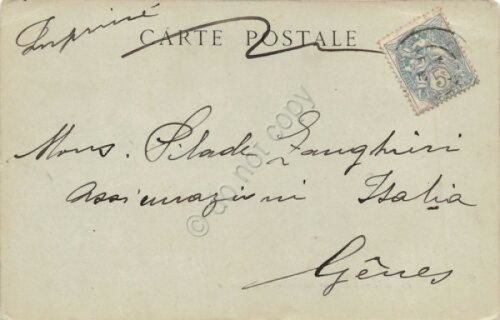 Imprimé
CARTE POSTALE
5c
Mons. Pilade Zanghieri
Assicurazioni Italia
Gênes
© do not copy